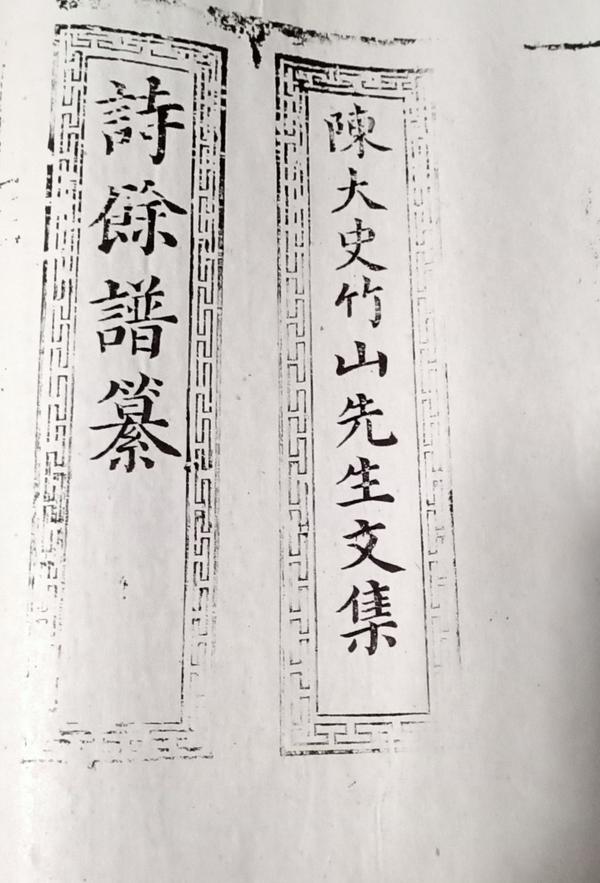 陳大史竹山先生文集
詩餘譜纂